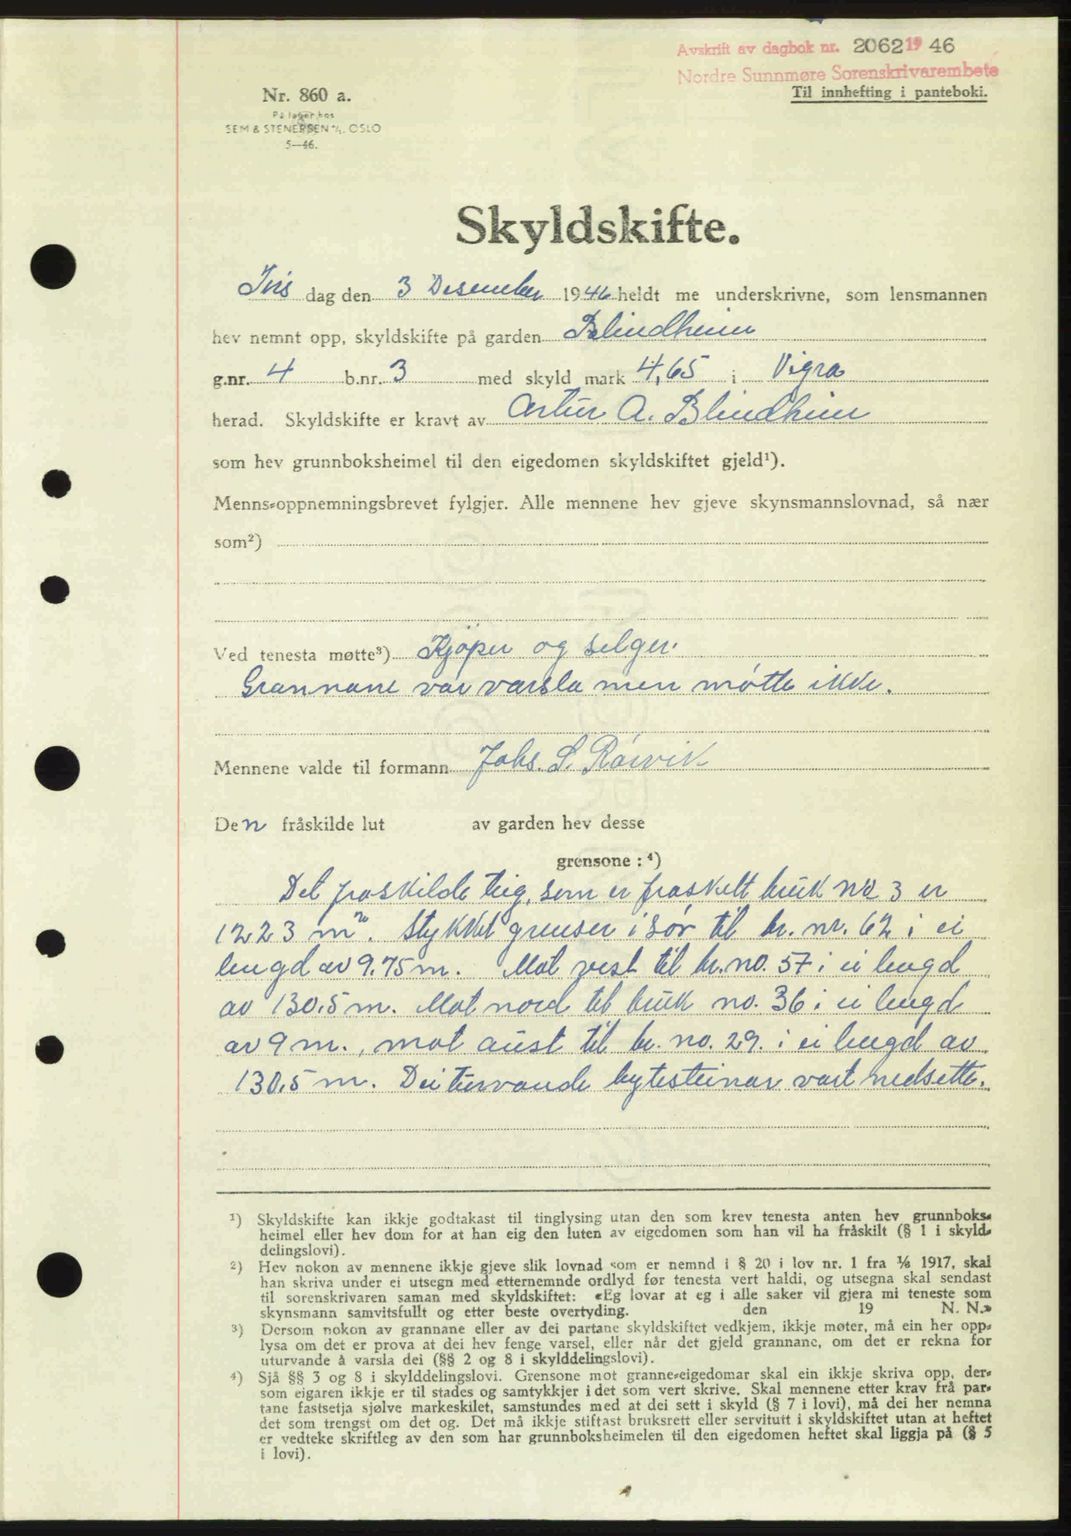 Avskrift av dagbok nr. 2062 19 46
Nordre Sunnmøre Sorenskrivarembete
Til innhefting i panteboki.
Nr. 860 a.
På lager hos
SEM & STENERSEN A/S. OSLO
5—46.
Skyldskifte.
Tris dag den 3 Desember 1946 heldt me underskrivne, som lensmannen
hev nemnt opp, skyldskifte på garden Blindheim
g.nr. 4 b.nr. 3 med skyld mark 4,65 i Vigra
herad. Skyldskifte er kravt av Artur A. Blindheim
som hev grunnboksheimel til den eigedomen skyldskiftet gjeld¹).
Menns-oppnemningsbrevet fylgjer. Alle mennene hev gjeve skynsmannslovnad, så nær
som²)
Ved tenesta møtte³) Kjøper og selger.
Grannane var varsla men møtte ikke.
Mennene valde til formann Johs. S. Rørvik
Den fråskilde lut av garden hev desse
grensone : ⁴)
Det fraskilde teig, som er fraskilt bruk no 3 er
1223 m². Stykket grenser i sør til br. nr. 62 i ei
lengd av 9.75 m. Mot vest til br. no. 57 i ei lengd
av 130,5 m. Mot nord til bruk no. 36 i ei lengd
av 9 m., mot aust til br. no. 29. i ei lengd av
130,5 m. Dei turvande bytesteinar vart nedsette.
¹) Skyldskifte kan ikkje godtakast til tinglysing utan den som krev tenesta anten hev grunnboks-
heimel eller hev dom for at han eig den luten av eigedomen som han vil ha fråskilt (§ 1 i skyld-
delingslovi).
²) Hev nokon av mennene ikkje gjeve slik lovnad som er nemnd i § 20 i lov nr. 1 fra ⅙ 1917, skal
han skriva under ei utsegn med etternemnde ordlyd før tenesta vert haldi, og utsegna skal sendast
til sorenskrivaren saman med skyldskiftet: «Eg lovar at eg i alle saker vil gjera mi teneste som
skynsmann samvitsfullt og etter beste overtyding. den 19 N. N.»
³) Dersom nokon av grannane eller av dei partane skyldskiftet vedkjem, ikkje møter, må ein her opp-
lysa om det er prova at dei hev fenge varsel, eller når det gjeld grannane, om det er rekna for
uturvande å varsla dei (§§ 2 og 8 i skylddelingslovi).
⁴) Sjå §§ 3 og 8 i skylddelingslovi. Grensone mot granne-eigedomar skal ein ikkje skriva opp, der-
som eigaren ikkje er til stades og samtykkjer i det som vert skrive. Skal mennene etter krav frå par-
tane fastsetja sjølve markeskilet, samstundes med at dei sett i skyld (§ 7 i lovi), må dei her nemna
det som trengst om det og. Det må ikkje stiftast bruksrett eller servitutt i skyldskiftet utan at heftet
er vedteke skriftleg av den som har grunnboksheimelen til den eigedomen heftet skal liggja på (§ 5
i lovi).